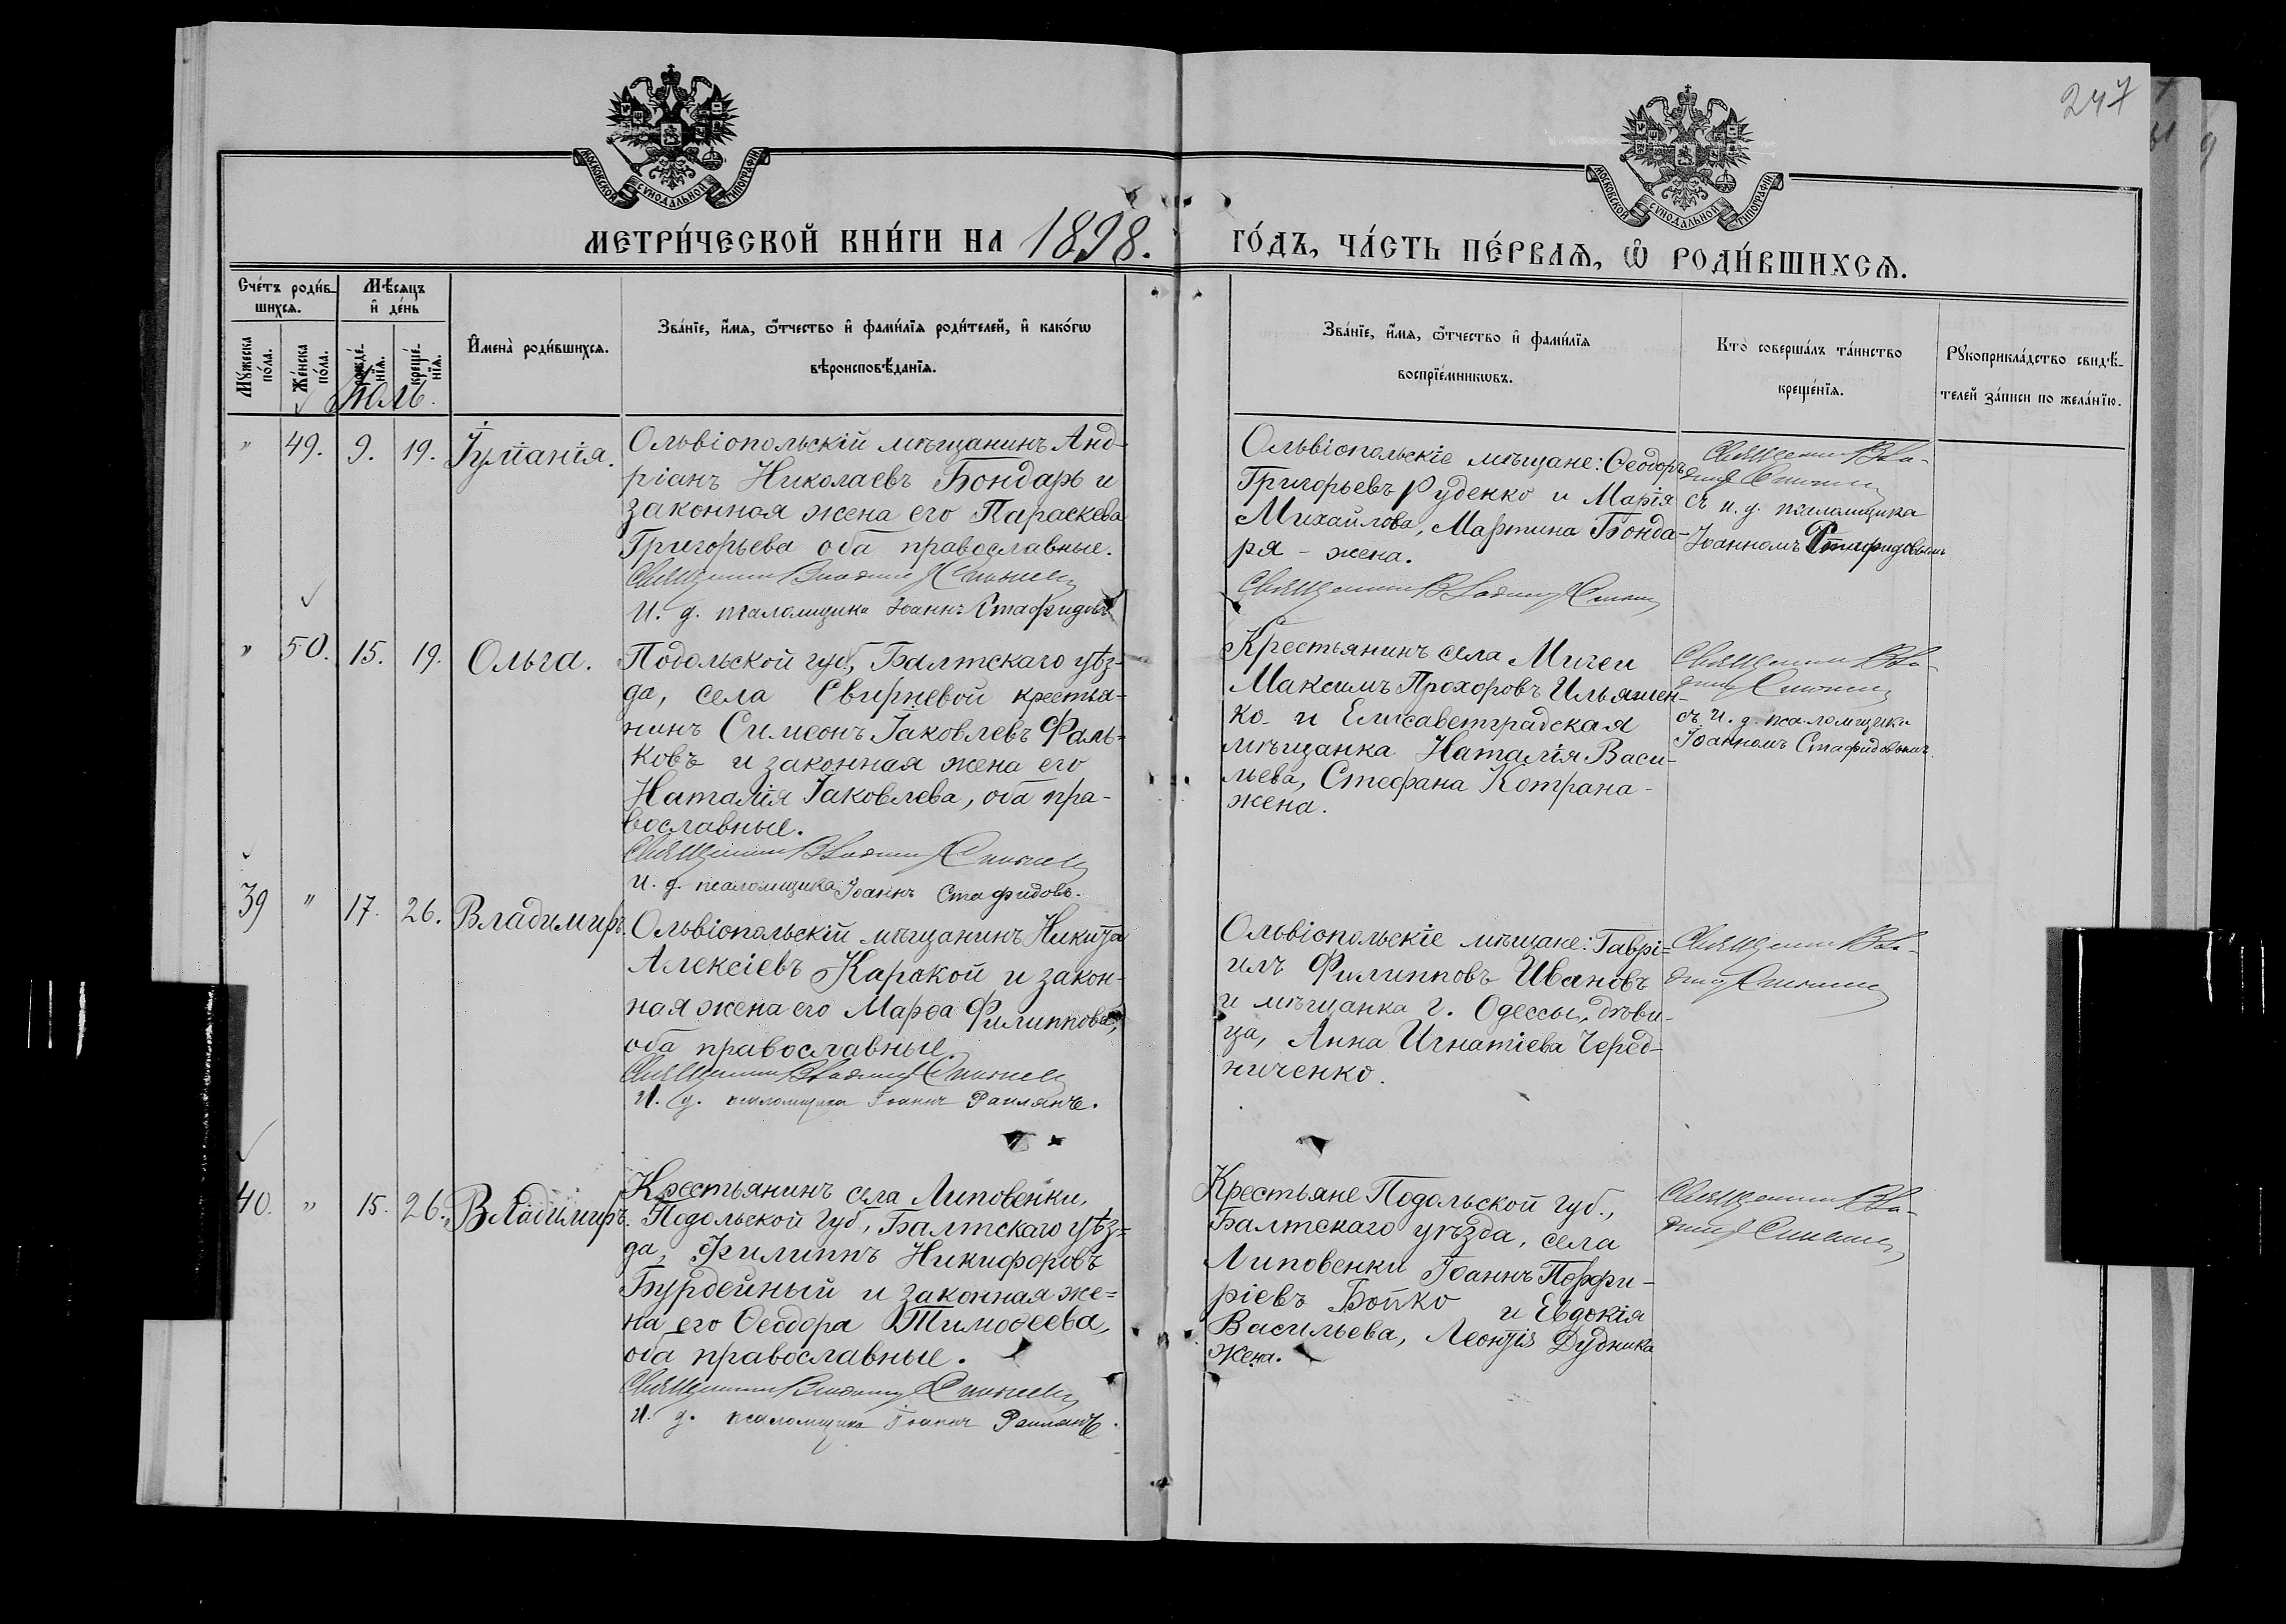 247
МОСКОВСКОЙ СѴНОДАЛЬНОЙ ТИПОГРАФІИ
МОСКОВСКОЙ СѴНОДАЛЬНОЙ ТИПОГРАФІИ
МЕТРИ́ЧЕСКОЙ КНИ́ГИ НА 1898. ГО́ДЪ, ЧА́СТЬ ПЕ́РВАѦ, Ѽ РОДИ́ВШИХСѦ.
Сче́тъ роди́в-
шихсѧ.
Мѣ́сѧцъ
и҆ де́нь
Мꙋ́жеска
по́ла.
Же́нска
по́ла.
рожде́-
нїѧ.
креще́-
нїѧ.
И҆мена̀ роди́вшихсѧ.
Зва́нїе, и҆́мѧ, ѻ҆́тчество и҆ фами́лїѧ роди́телей, и҆ како́гѡ
вѣроисповѣ́данїѧ.
Зва́нїе, и҆́мѧ, ѻ҆́тчество и҆ фами́лїѧ
воспрїе́мникѡвъ.
Кто̀ соверша́лъ та́инство
креще́нїѧ.
Рꙋкоприкла́дство свидѣ́-
телей за́писи по жела́нїю.
Іюль.
" 49. 9. 19. Іуліанія.
Ольвіопольскій мѣщанинъ Анд-
ріанъ Николаевъ Бондарь и
законная жена его Параскева
Григорьева оба православные.
Священникъ Владимиръ
И. д. псаломщика Іоаннъ Стафидовъ
Ольвіопольскіе мѣщане: Ѳеодоръ
Григорьевъ Руденко и Марія
Михайлова, Мартина Бонда-
ря - жена.
Священникъ Владимиръ
Священникъ Вла-
димиръ
съ и. д. псаломщика
Іоанномъ Стафидовымъ
" 50. 15. 19. Ольга.
Подольской губ., Балтскаго уѣз-
да, села Свирневой крестья-
нинъ Симеонъ Іаковлевъ Фаль-
ковъ и законная жена его
Наталія Іаковлева, оба пра-
вославные.
Священникъ Владимиръ
И. д. псаломщика Іоаннъ Стафидовъ.
Крестьянинъ села Мигеи
Максимъ Прохоровъ Ильяшен-
ко и Елисаветградская
мѣщанка Наталія Васи-
льева, Стефана Котрана -
жена.
Священникъ Вла-
димиръ
съ И. д. псаломщика
Іоанномъ Стафидовымъ.
39 " 17. 26. Владимиръ.
Ольвіопольскій мѣщанинъ Никита
Алексіевъ Каракой и закон-
ная жена его Марѳа Филиппова,
оба православные.
Священникъ Владимиръ
И. д. псаломщика Іоаннъ
Ольвіопольскіе мѣщане: Гаврі-
илъ Филипповъ Ивановъ
и мѣщанка г. Одессы, дѣви-
ца, Анна Игнатіева Черед-
ниченко.
Священникъ Вла-
димиръ
40. " 15. 26. Владимиръ.
Крестьянинъ села Липовенки,
Подольской губ., Балтскаго уѣз-
да, Филиппъ Никифоровъ
Бурдейный и законная же-
на его Ѳеодора Тимоѳеева,
оба православные.
Священникъ Владимиръ
И. д. псаломщика Іоаннъ
Крестьяне Подольской губ.,
Балтскаго уѣзда, села
Липовенки Іоаннъ Порфи-
ріевъ Бойко и Евдокія
Васильева, Леонтія Дудника
жена.
Священникъ Вла-
димиръ